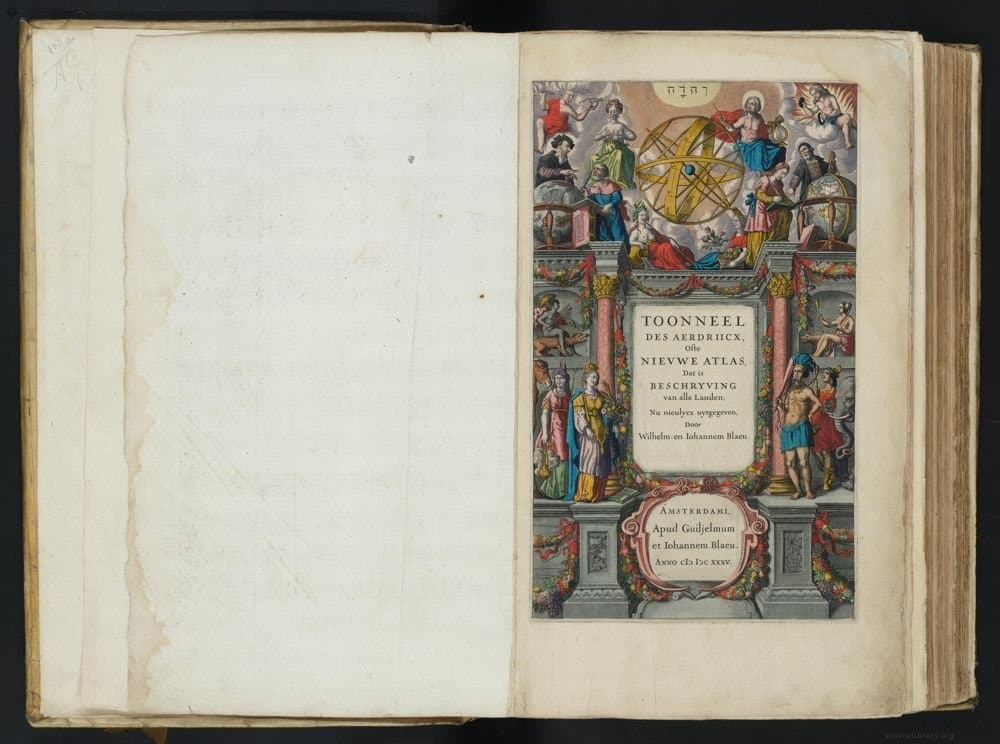 יהוה
TOONNEEL
DES AERDRIICX,
Ofte
NIEVWE ATLAS,
Dat is
BESCHRYVING
van alle Landen;
Nu nieulycx uytgegeven,
Door
Wilhelm: en Iohannem Blaeu.
AMSTERDAMI,
Apud Guiljelmum
et Iohannem Blaeu.
ANNO CIↃ IↃC XXXV.